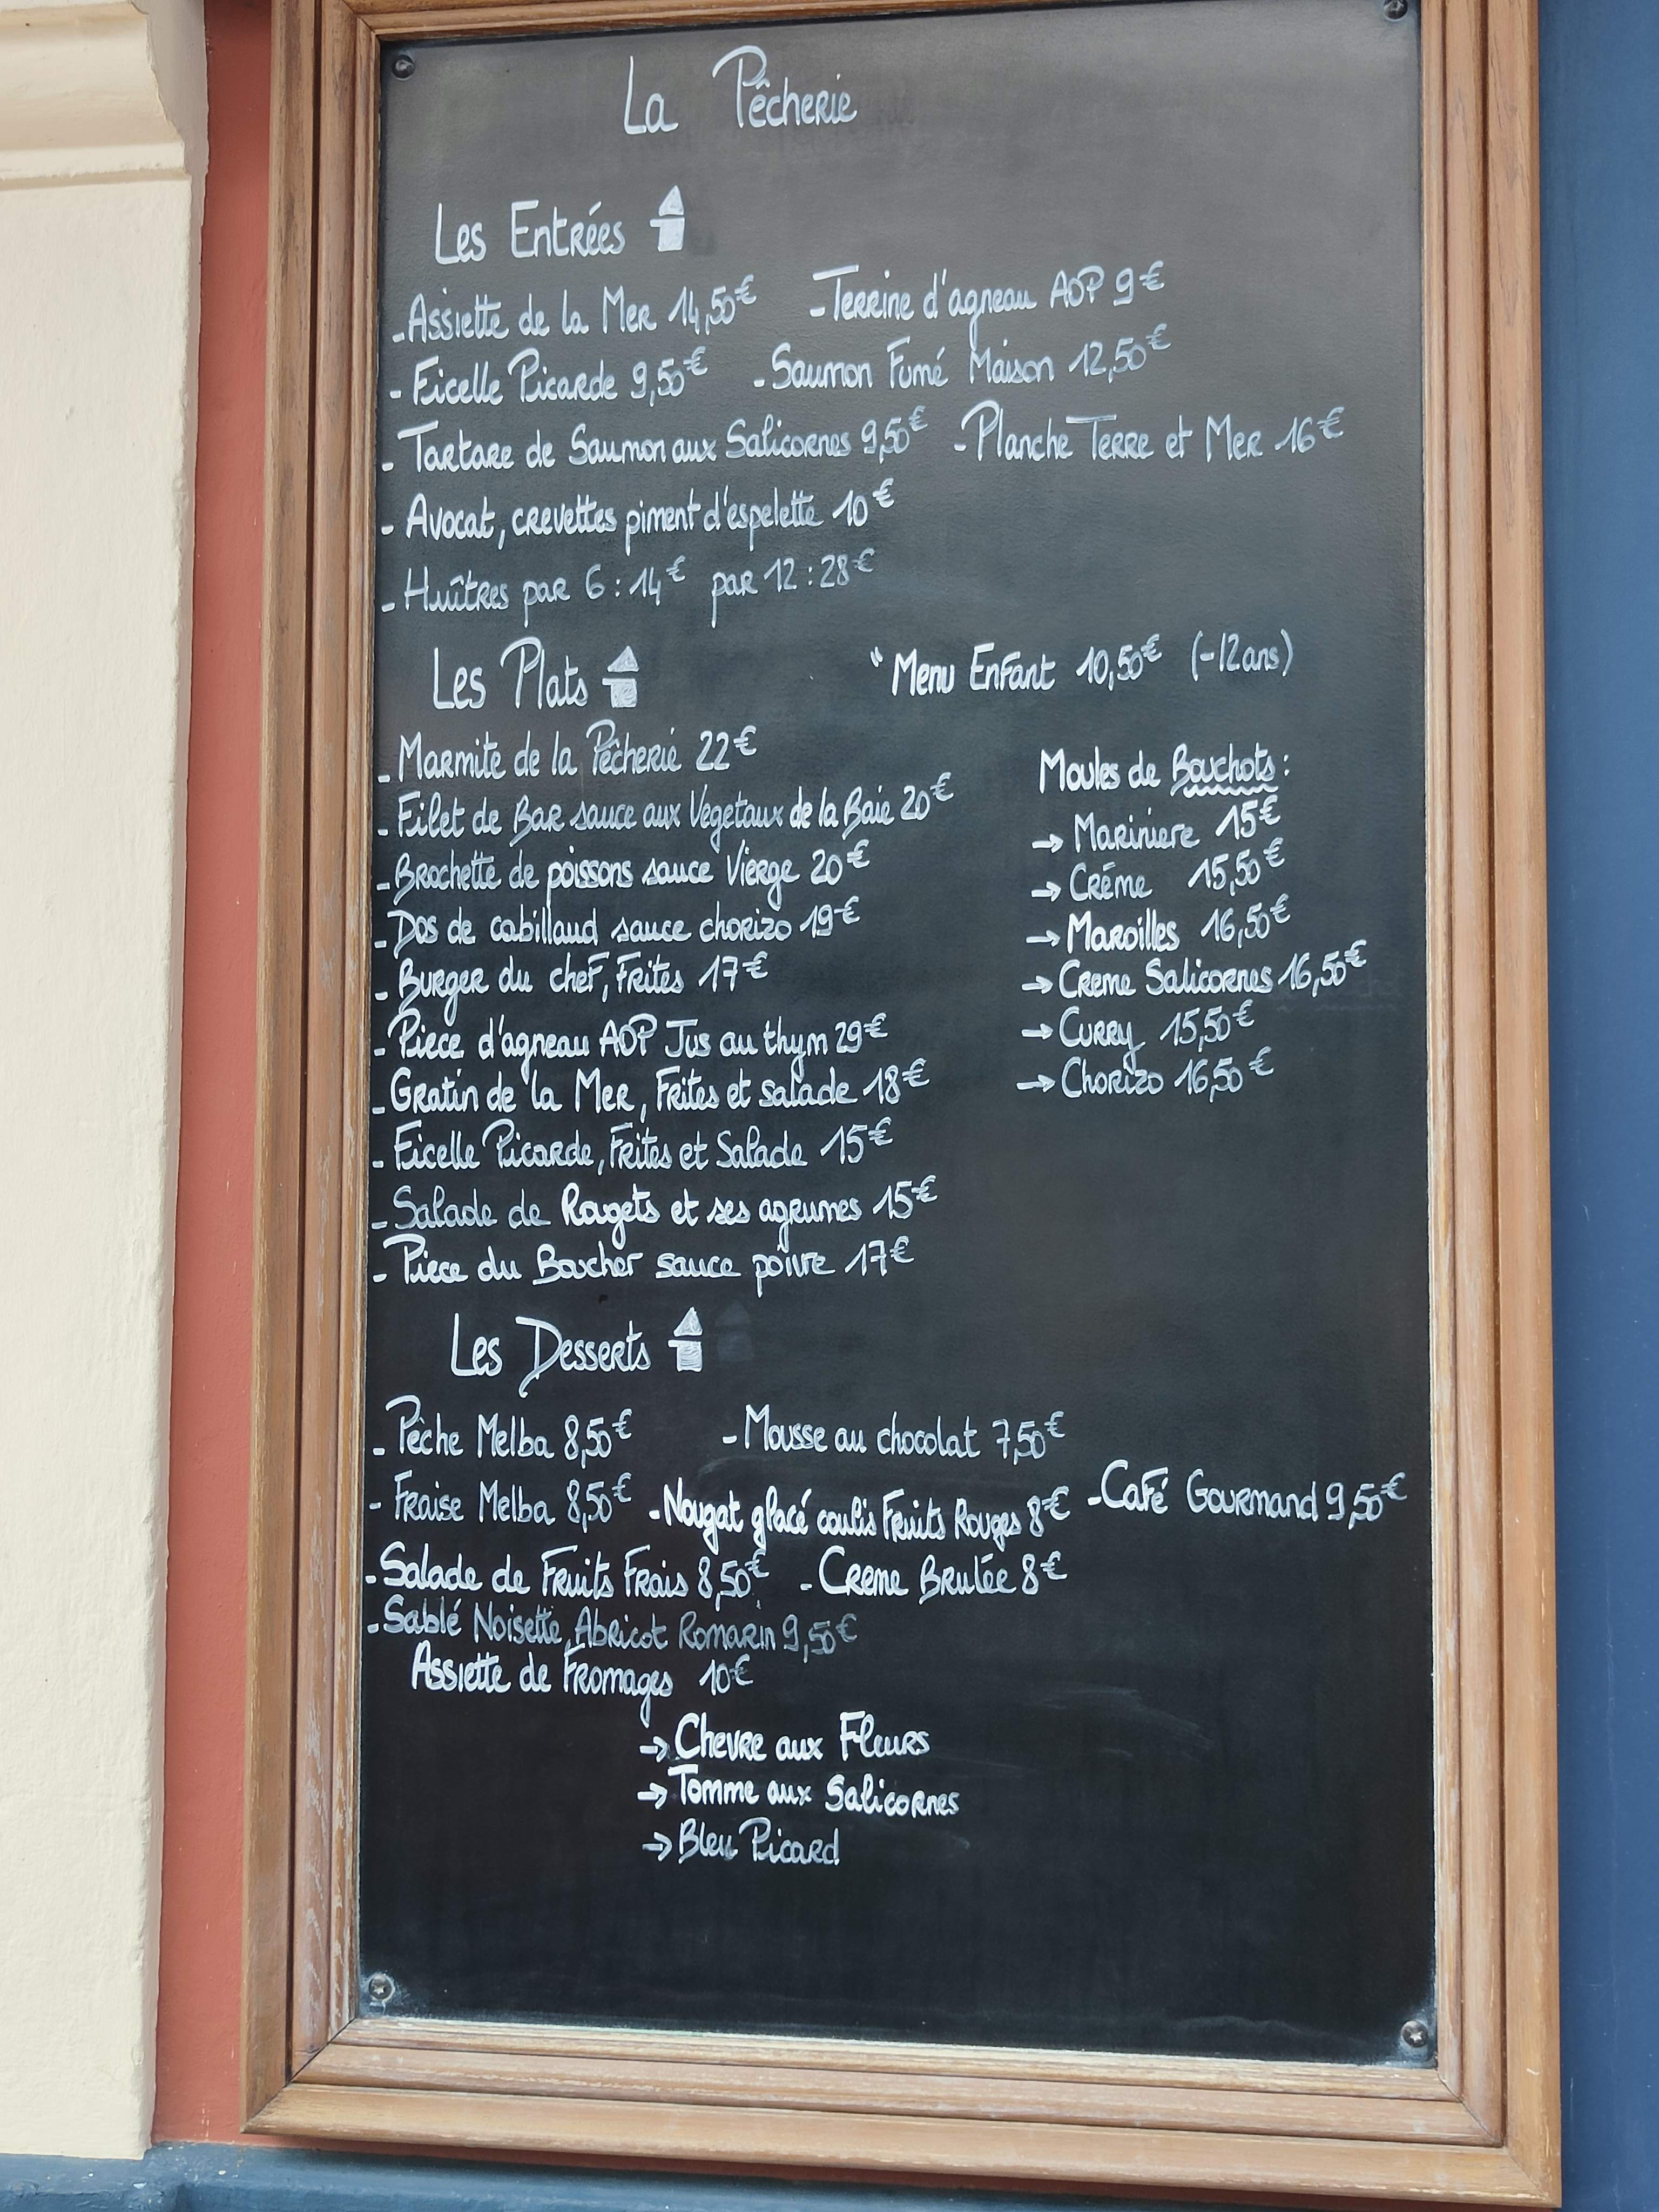 La Pêcherie
Les Entrées
- Assiette de la Mer 14,50€ - Terrine d'agneau AOP 9€
- Ficelle Picarde 9,50€ - Saumon Fumé Maison 12,50€
- Tartare de Saumon aux Salicornes 9,50€ - Planche Terre et Mer 16€
- Avocat, crevettes piment d'espelette 10€
- Huîtres par 6 : 14€ par 12 : 28€
Les Plats
" Menu Enfant 10,50€ (-12ans)
- Marmite de la Pêcherie 22€
- Filet de Bar sauce aux Végetaux de la Baie 20€
- Brochette de poissons sauce Vierge 20€
- Dos de cabillaud sauce chorizo 19€
- Burger du chef, Frites 17€
- Piece d'agneau AOP Jus au thym 29€
- Gratin de la Mer, Frites et salade 18€
- Ficelle Picarde, Frites et Salade 15€
- Salade de Rougets et ses agrumes 15€
- Piece du Boucher sauce poivre 17€
Moules de Bouchots :
→ Mariniere 15€
→ Créme 15,50€
→ Maroilles 16,50€
→ Creme Salicornes 16,50€
→ Curry 15,50€
→ Chorizo 16,50€
Les Desserts
- Pêche Melba 8,50€ - Mousse au chocolat 7,50€
- Fraise Melba 8,50€ - Nougat glacé coulis Fruits Rouges 8€ - Café Gourmand 9,50€
- Salade de Fruits Frais 8,50€ - Creme Brulée 8€
- Sablé Noisette, Abricot Romarin 9,50€
Assiette de Fromages 10€
→ Chevre aux Fleurs
→ Tomme aux Salicornes
→ Bleu Picard